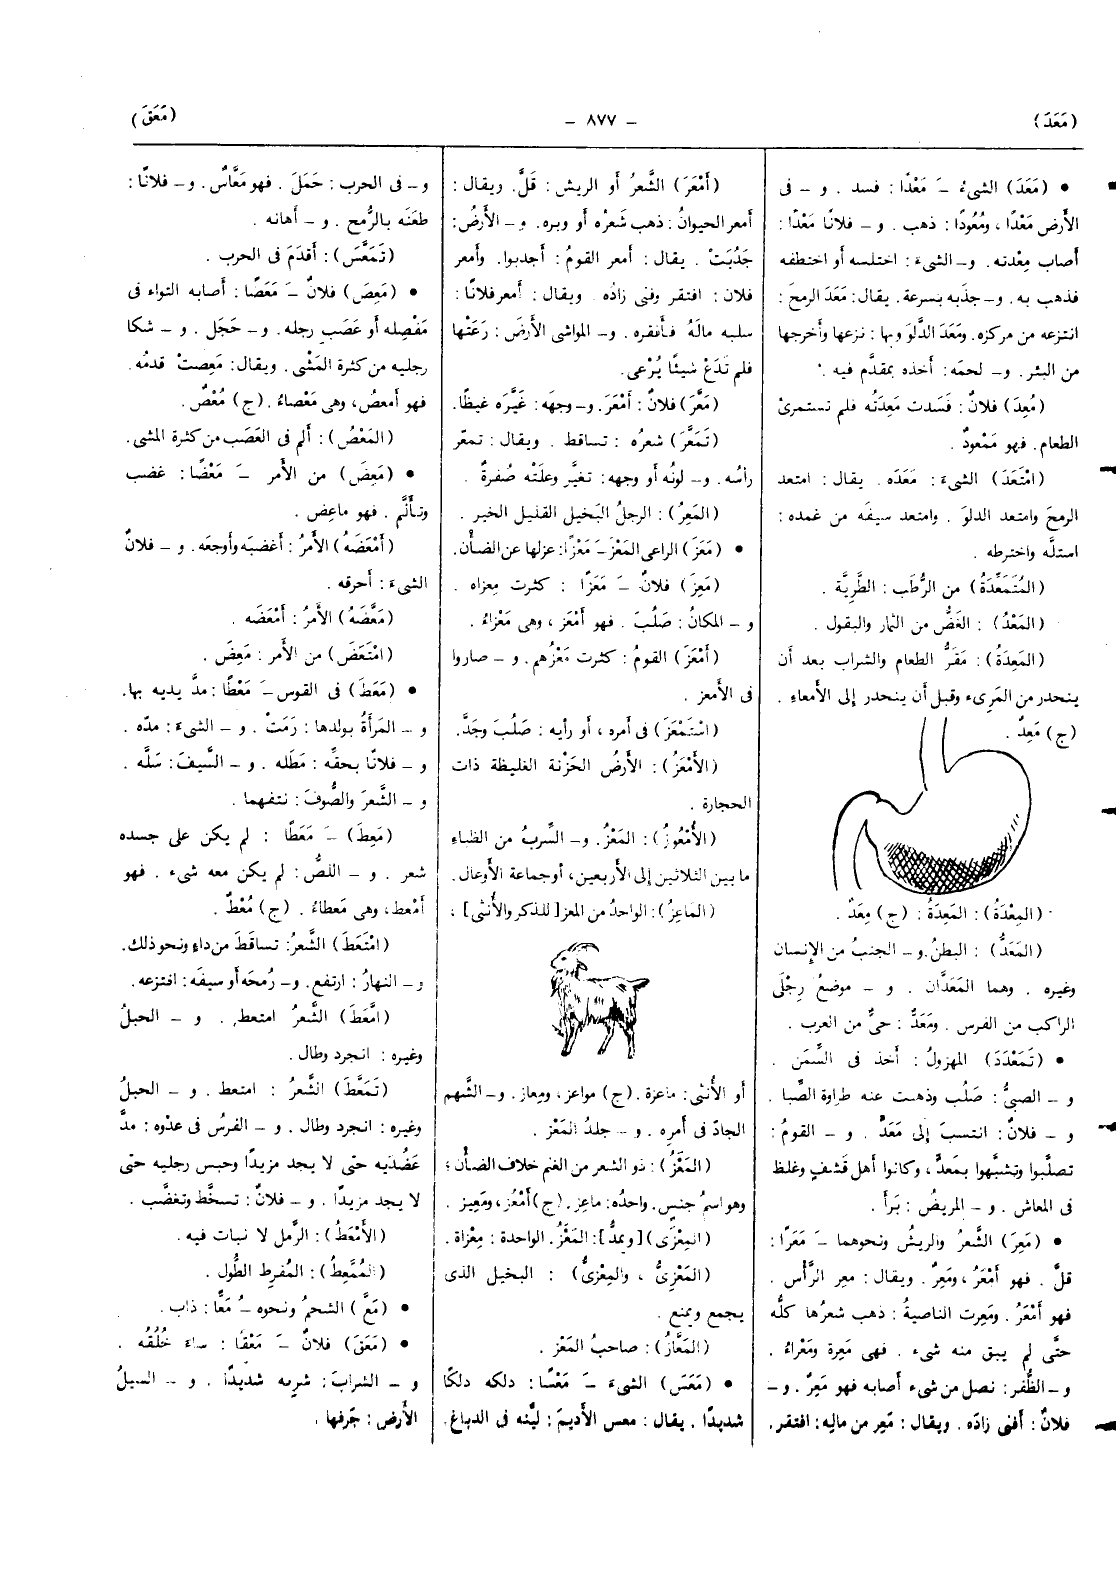 (مَعَدَ)
– ٨٧٧ –
(مَعَقَ)
• (مَعَدَ) الشىءُ ـَ مَعْدًا: فسد . و – فى
الأرض مَعْدًا ، ومُعُودًا : ذهب . و – فلانًا مَعْدًا :
أصاب مِعْدته . و–الشىءَ : اختلسه أو اختطفه
فذهب به . و–جذبه بسرعة . يقال : مَعَدَ الرمحَ :
انتزعه من مركزه. ومَعَدَ الدَّلوَ وبها : نزعها وأخرجها
من البئر . و– لحمَه : أخذه بمقدَّم فيه .
(مُعِدَ) فلانٌ : فَسَدت مَعِدتُه فلم تستمرئْ
الطعام. فهو مَمْعودٌ .
(امْتَعَدَ) الشىءَ : مَعَدَه . يقال : امتعد
الرمحَ وامتعد الدلوَ . وامتعد سيفَه من غمده :
استلَّه واخترطه .
(المُتَمَعِّدَةُ) من الرُّطَب : الطَّرِيَّة .
(المَعْدُ) : الغَضُّ من الثمار والبقول .
(المَعِدَةُ) : مَقَرُّ الطعام والشراب بعد أن
ينحدر من المَرِىء وقبل أن ينحدر إلى الأَمعاءِ .
(ج) مَعِدٌ .
(المِعْدَةُ) : المَعِدَةُ : (ج) مِعَدٌ .
(المَعَدُّ) : البطنُ. و– الجنبُ من الإنسان
وغيره . وهما المَعَدَّان . و – موضعُ رِجْلَى
الراكب من الفرس . ومَعَدٌّ : حىٌّ من العرب .
• (تَمَعْدَدَ) المهزولُ : أخذ فى السِّمَن .
و – الصبىُّ : صَلُب وذهبت عنه طراوة الصِّبا .
و – فلانٌ : انتسبَ إلى مَعَدٍّ . و – القومُ :
تصلَّبوا وتشبَّهوا بمَعدٍّ ، وكانوا أهل قَشف وغلظ
فى المعاش . و – المريضُ : بَرأَ .
• (مَعِرَ) الشَّعرُ والريشُ ونحوهما ـَ مَعَرًا :
قلَّ . فهو أَمْعَرُ ، ومَعِرٌ . ويقال : معِر الرَّأْس .
فهو أَمْعَرُ . ومَعِرت الناصيةُ : ذهب شعرُها كلُّه
حتَّى لم يبق منه شىء . فهى مَعِرة ومَعْراءُ .
و–الظُّفر : نصل من شىء أصابه فهو مَعِرٌ . و–
فلانٌ : أَفنى زادَه . ويقال : مَعِر من ماله : افتقر .
(أَمْعَرَ) الشَّعرُ أو الريش : قَلَّ. ويقال :
أمعر الحيوانُ : ذهب شَعرُه أو وبره . و–الأَرضُ :
جَدُبَتْ . يقال : أمعر القومُ : أجدبوا. وأمعر
فلان : افتقر وفنى زادُه . ويقال : أمعر فلانًا :
سلبه مالَهُ فأفقره . و– المواشى الأرضَ : رَعَتْها
فلم تَدَعْ شيئًا يُرْعى.
(مَعَّرَ) فلانٌ : أَمْعَرَ. و–وجهَه : غَيَّرَه غيظًا.
(تَمَعَّرَ) شعرُه : تساقط . ويقال : تمعّر
رأسُه . و– لونُه أو وجهه : تغيَّر وعلَتْه صُفرةٌ .
(المَعِرُ) : الرجلُ البَخيل القليل الخير .
• (مَعَزَ) الراعى المَعْزَ ـَ مَعْزًا: عزلها عن الضأن.
(مَعِزَ) فلانٌ ـَ مَعَزًا : كثرت مِعزاه .
و – المكانُ : صَلُبَ . فهو أَمْعَز ، وهى مَعْزاءُ .
(أَمْعَزَ) القومُ : كثرت مَعْزُهم . و – صاروا
فى الأَمعز .
(اسْتَمْعَزَ) فى أمره ، أو رأيه : صَلُبَ وجَدَّ.
(الأَمْعَزُ) : الأَرضُ الحَزْنة الغليظة ذات
الحجارة .
(الأُمْعُوزُ) : المَعْزُ. و– السِّربُ من الظباء
ما بين الثلاثين إلى الأربعين، أوجماعة الأَوعال.
(الماعِزُ) : الواحدُ من المعز [للذكر والأنثى] ،
أو الأُنثى : ماعزة . (ج) مواعز ، ومِعاز . و– الشَّهم
الجادّ فى أمره . و – جلدُ المَعْز .
(المَعْزُ) : ذو الشعر من الغنم خلاف الضأن ؛
وهو اسمُ جنس. واحدُه : ماعِز. (ج) أَمْعُز ، ومَعِيز .
(المِعْزَى) [ويمدُّ] : المَعْزُ. الواحدة : مِعْزاة .
(المَعْزِىُّ ، والمِعْزِىُّ) : البخيل الذى
يجمع ويمنع .
(المَعَّازُ) : صاحبُ المَعْز .
• (مَعَسَ) الشىءَ ـَ مَعْسًا : دلكه دلكًا
شديدًا . يقال : معس الأديمَ : ليَّنه فى الدباغ.
و– فى الحرب : حَمَلَ . فهو مَعَّاسٌ. و– فلانًا :
طعَنَه بالرُّمح . و – أهانه .
(تَمَعَّسَ) : أَقدَمَ فى الحرب .
• (مَعِصَ) فلانٌ ـَ مَعَصًا : أصابه التواء فى
مَفْصِله أو عَصَب رجله. و– حَجَل . و– شكا
رجليه من كثرة المَشْى . ويقال : مَعِصتْ قدمُه.
فهو أمعصُ، وهى مَعْصاءُ. (ج) مُعْصٌ.
(المَعْصُ) : ألم فى العَصَب من كثرة المشى.
• (مَعِضَ) من الأمر ـَ مَعْضًا : غضب
وتأَلَّم . فهو ماعِض .
(أَمْعَضَهُ) الأمرُ : أغضبَه وأوجعَه . و– فلانٌ
الشىءَ : أحرقه .
(مَعَّضَهُ) الأمرُ : أَمْعَضَه .
(امْتَعَضَ) من الأمر : مَعِضَ .
• (مَعَطَ) فى القوس ـَ مَعْطًا : مدَّ يديه بها.
و – المَرأةُ بولدها : رَمَتْ . و – الشىءَ : مدّه .
و – فلانًا بحقّه : مَطَله . و – السَّيفَ : سَلَّه .
و – الشَّعرَ والصُّوفَ : نتفهما .
(مَعِطَ) ـَ مَعَطًا : لم يكن على جسده
شعر . و – اللصُّ : لم يكن معه شىء . فهو
أَمْعط، وهى مَعطاءُ . (ج) مُعْطٌ.
(امْتَعَطَ) الشَّعرُ : تساقطَ من داءٍ ونحو ذلك.
و– النهارُ : ارتفع. و– رُمحَه أو سيفَه : انتزعه.
(امَّعَطَ) الشَّعرُ امتعط . و – الحبلُ
وغيره : انجرد وطال .
(تَمَعَّطَ) الشَّعرُ : امتعط . و – الحبلُ
وغيره : انجرد وطال . و – الفرسُ فى عدْوه : مدَّ
عَضُديه حتى لا يجد مزيدًا وحبس رجليه حتى
لا يجد مزيدًا . و – فلانٌ : تسخَّط وتغضَّب .
(الأَمْعَطُ) : الرَّمل لا نبات فيه .
(المُمَّعِطُ) : المُفرِط الطُّول .
• (مَعَّ) الشحمُ ونحوه ـُ مَعًّا : ذاب .
• (مَعَقَ) فلانٌ ـَ مَعْقًا : ساءَ خُلُقُه .
و – الشرابَ : شربه شديدًا . و – السيلُ
الأَرضَ : جَرفها .